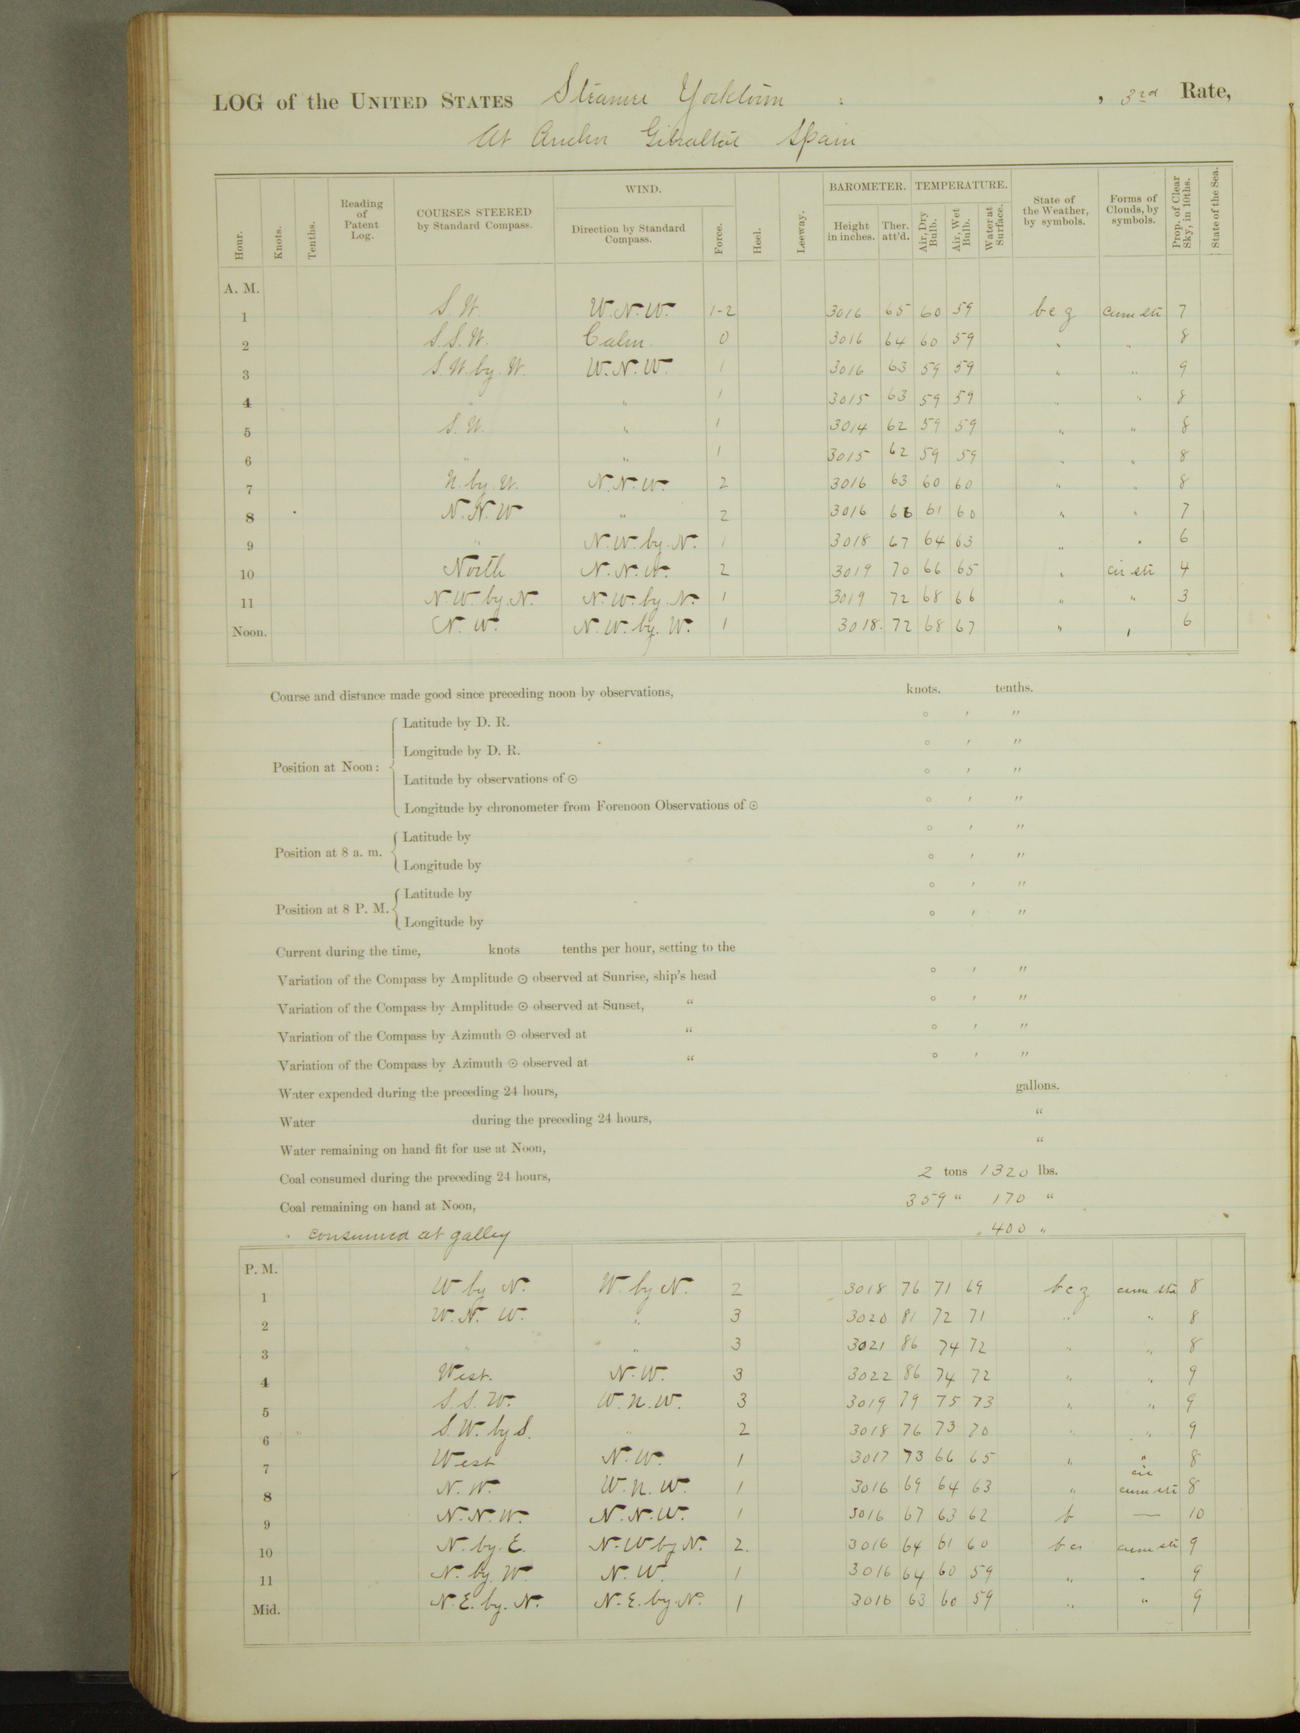 LOG of the UNITED STATES Steamer Yorktown , 3rd Rate,
At Anchor Gibraltar Spain
Hour. Knots. Tenths. Reading of Patent Log. COURSES STEERED by Standard Compass. WIND. Direction by Standard Compass. Force. Heel. Leeway. BAROMETER. Height in inches. Ther. att'd. TEMPERATURE. Air, Dry Bulb. Air, Wet Bulb. Water at Surface. State of the Weather, by symbols. Forms of Clouds, by symbols. Prop. of Clear Sky, in 10ths. State of the Sea.
A. M.
1 S.W. W.N.W. 1-2 3016 65 60 59 bcz cum str 7
2 S.S.W. Calm 0 3016 64 60 59 " " 8
3 S.W. by W. W.N.W. 1 3016 63 59 59 " " 9
4 " " 1 3015 63 59 59 " " 8
5 S.W. " 1 3014 62 59 59 " " 8
6 " " 1 3015 62 59 59 " " 8
7 N. by W. N.N.W. 2 3016 63 60 60 " " 8
8 N.N.W " 2 3016 66 61 60 " " 7
9 " N.W. by N. 1 3018 67 64 63 " " 6
10 North N.N.W. 2 3019 70 66 65 " cir str 4
11 N.W. by N. N.W. by N. 1 3019 72 68 66 " " 3
Noon. N.W. N.W. by W. 1 3018. 72 68 67 " " 6
Course and distance made good since preceding noon by observations, knots. tenths.
Position at Noon: Latitude by D. R. ° ′ ″
Longitude by D. R. ° ′ ″
Latitude by observations of ☉ ° ′ ″
Longitude by chronometer from Forenoon Observations of ☉ ° ′ ″
Position at 8 a. m. Latitude by ° ′ ″
Longitude by ° ′ ″
Position at 8 P. M. Latitude by ° ′ ″
Longitude by ° ′ ″
Current during the time, knots tenths per hour, setting to the
Variation of the Compass by Amplitude ☉ observed at Sunrise, ship's head ° ′ ″
Variation of the Compass by Amplitude ☉ observed at Sunset, " ° ′ ″
Variation of the Compass by Azimuth ☉ observed at " ° ′ ″
Variation of the Compass by Azimuth ☉ observed at " ° ′ ″
Water expended during the preceding 24 hours, gallons.
Water during the preceding 24 hours, "
Water remaining on hand fit for use at Noon, "
Coal consumed during the preceding 24 hours, 2 tons 1320 lbs.
Coal remaining on hand at Noon, 359 " 170 "
" consumed at galley " 400 "
P. M.
1 W by N. W. by N. 2 3018 76 71 69 bcz cum str 8
2 W.N.W. " 3 3020 81 72 71 " " 8
3 " " 3 3021 86 74 72 " " 8
4 West. N.W. 3 3022 86 74 72 " " 9
5 S.S.W. W.N.W. 3 3019 79 75 73 " " 9
6 S.W. by S. " 2 3018 76 73 70 " " 9
7 West N.W. 1 3017 73 66 65 " " 8
8 N.W. W.N.W. 1 3016 69 64 63 " cir cum str 8
9 N.N.W. N.N.W. 1 3016 67 63 62 b — 10
10 N. by E. N.W by N. 2. 3016 64 61 60 bc cum str 9
11 N. by W. N.W. 1 3016 64 60 59 " " 9
Mid. N.E. by N. N.E. by N. 1 3016 63 60 59 " " 9